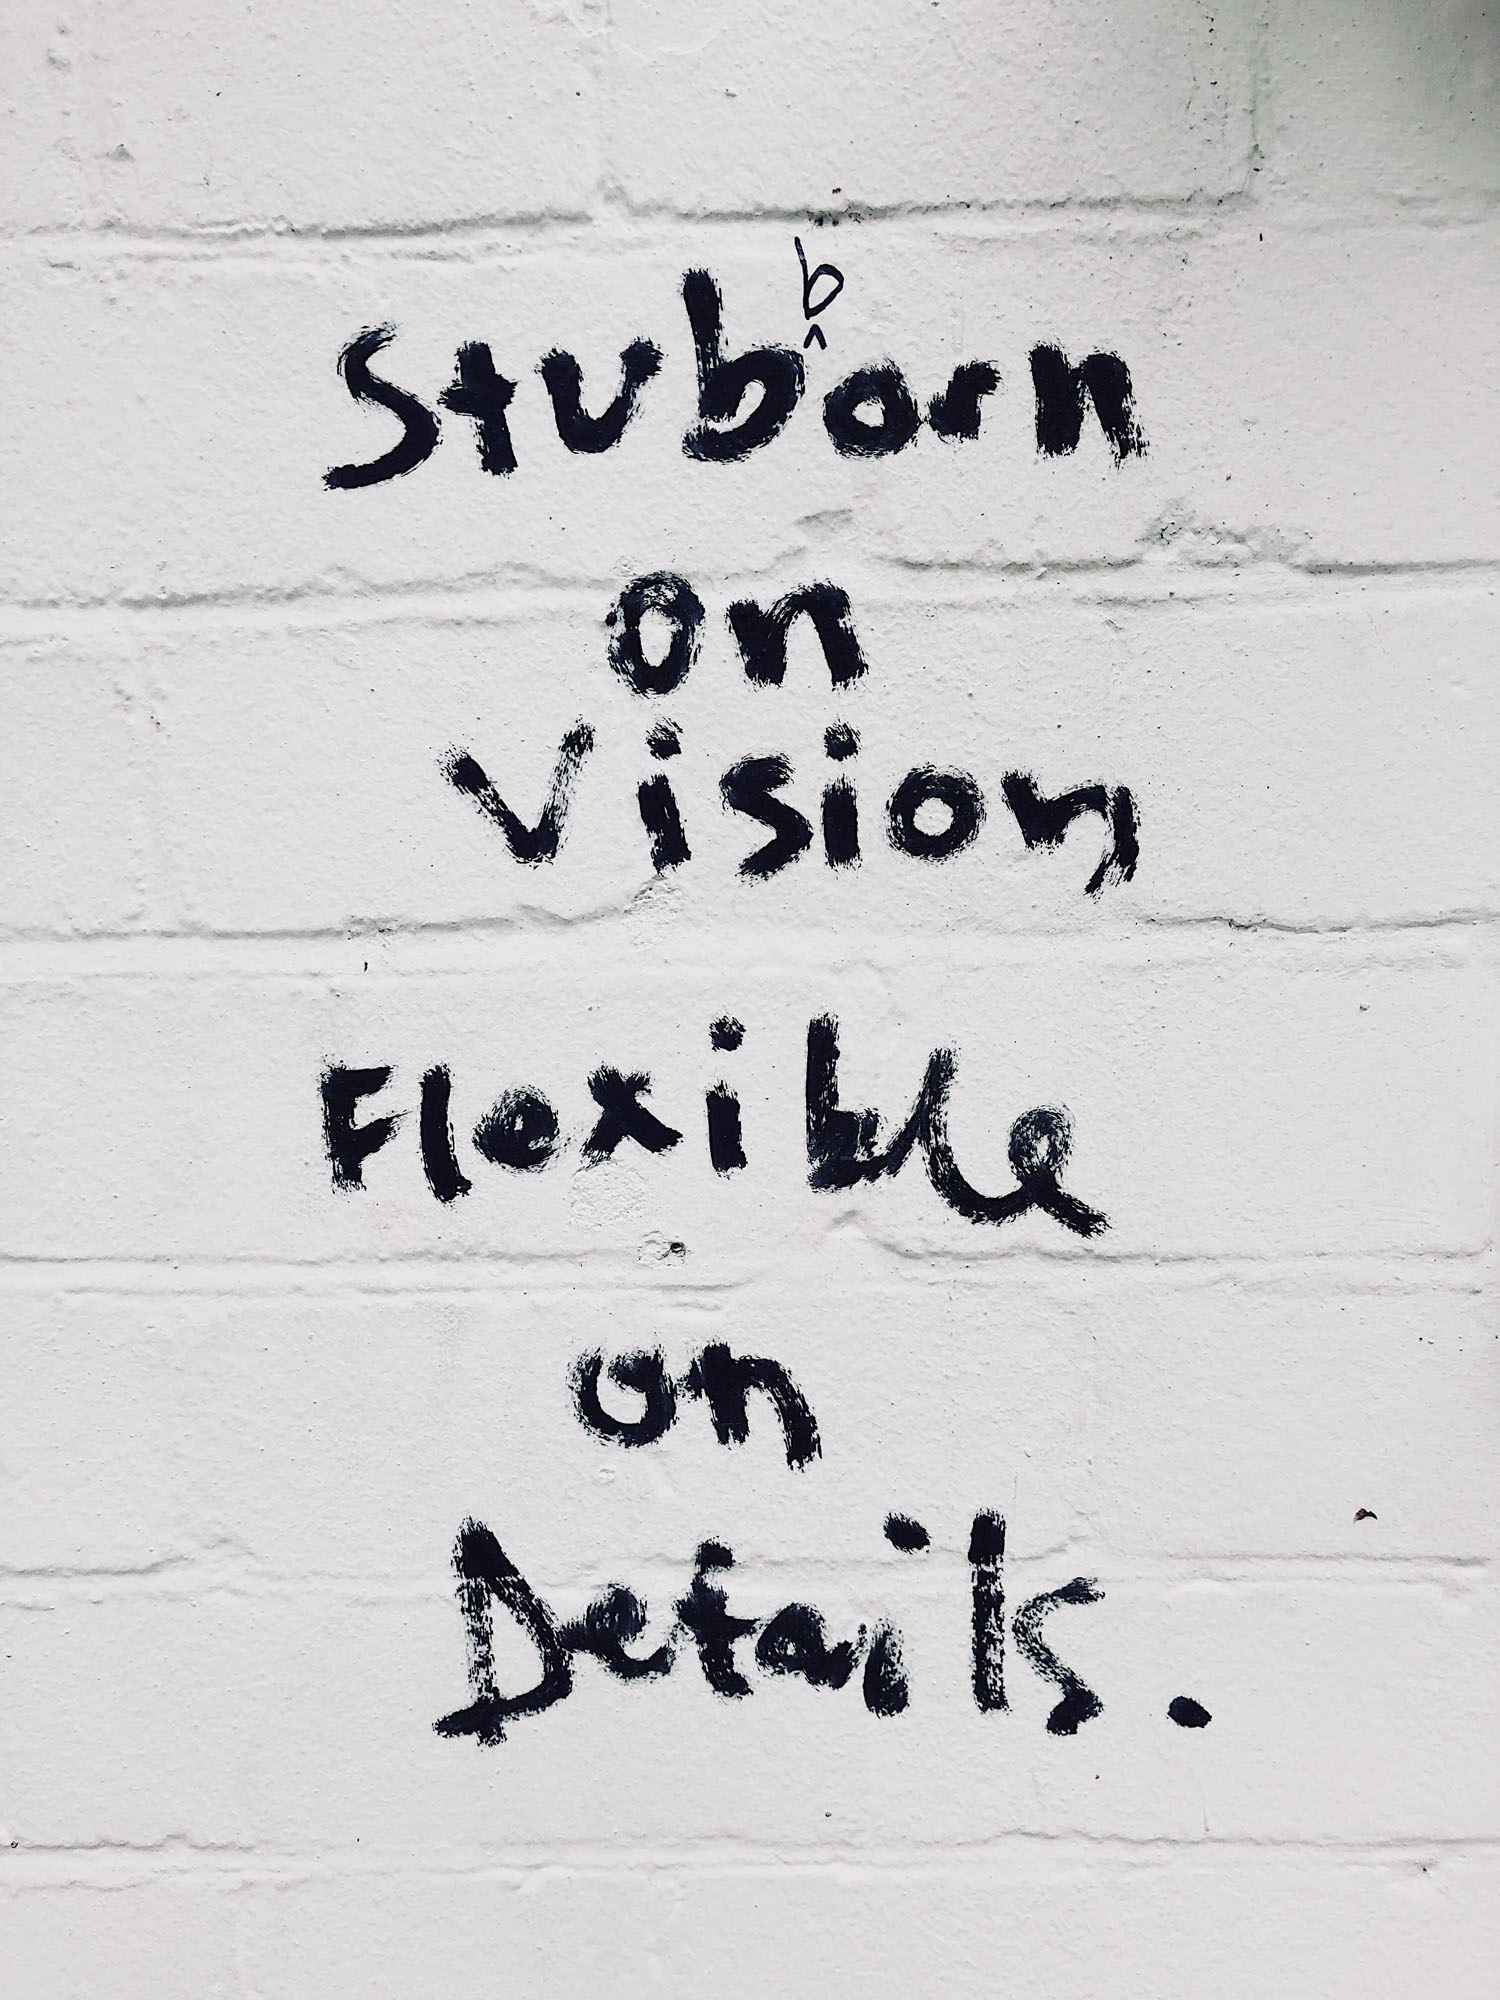 b
^
Stuborn
on
Vision
Flexible
on
Details.